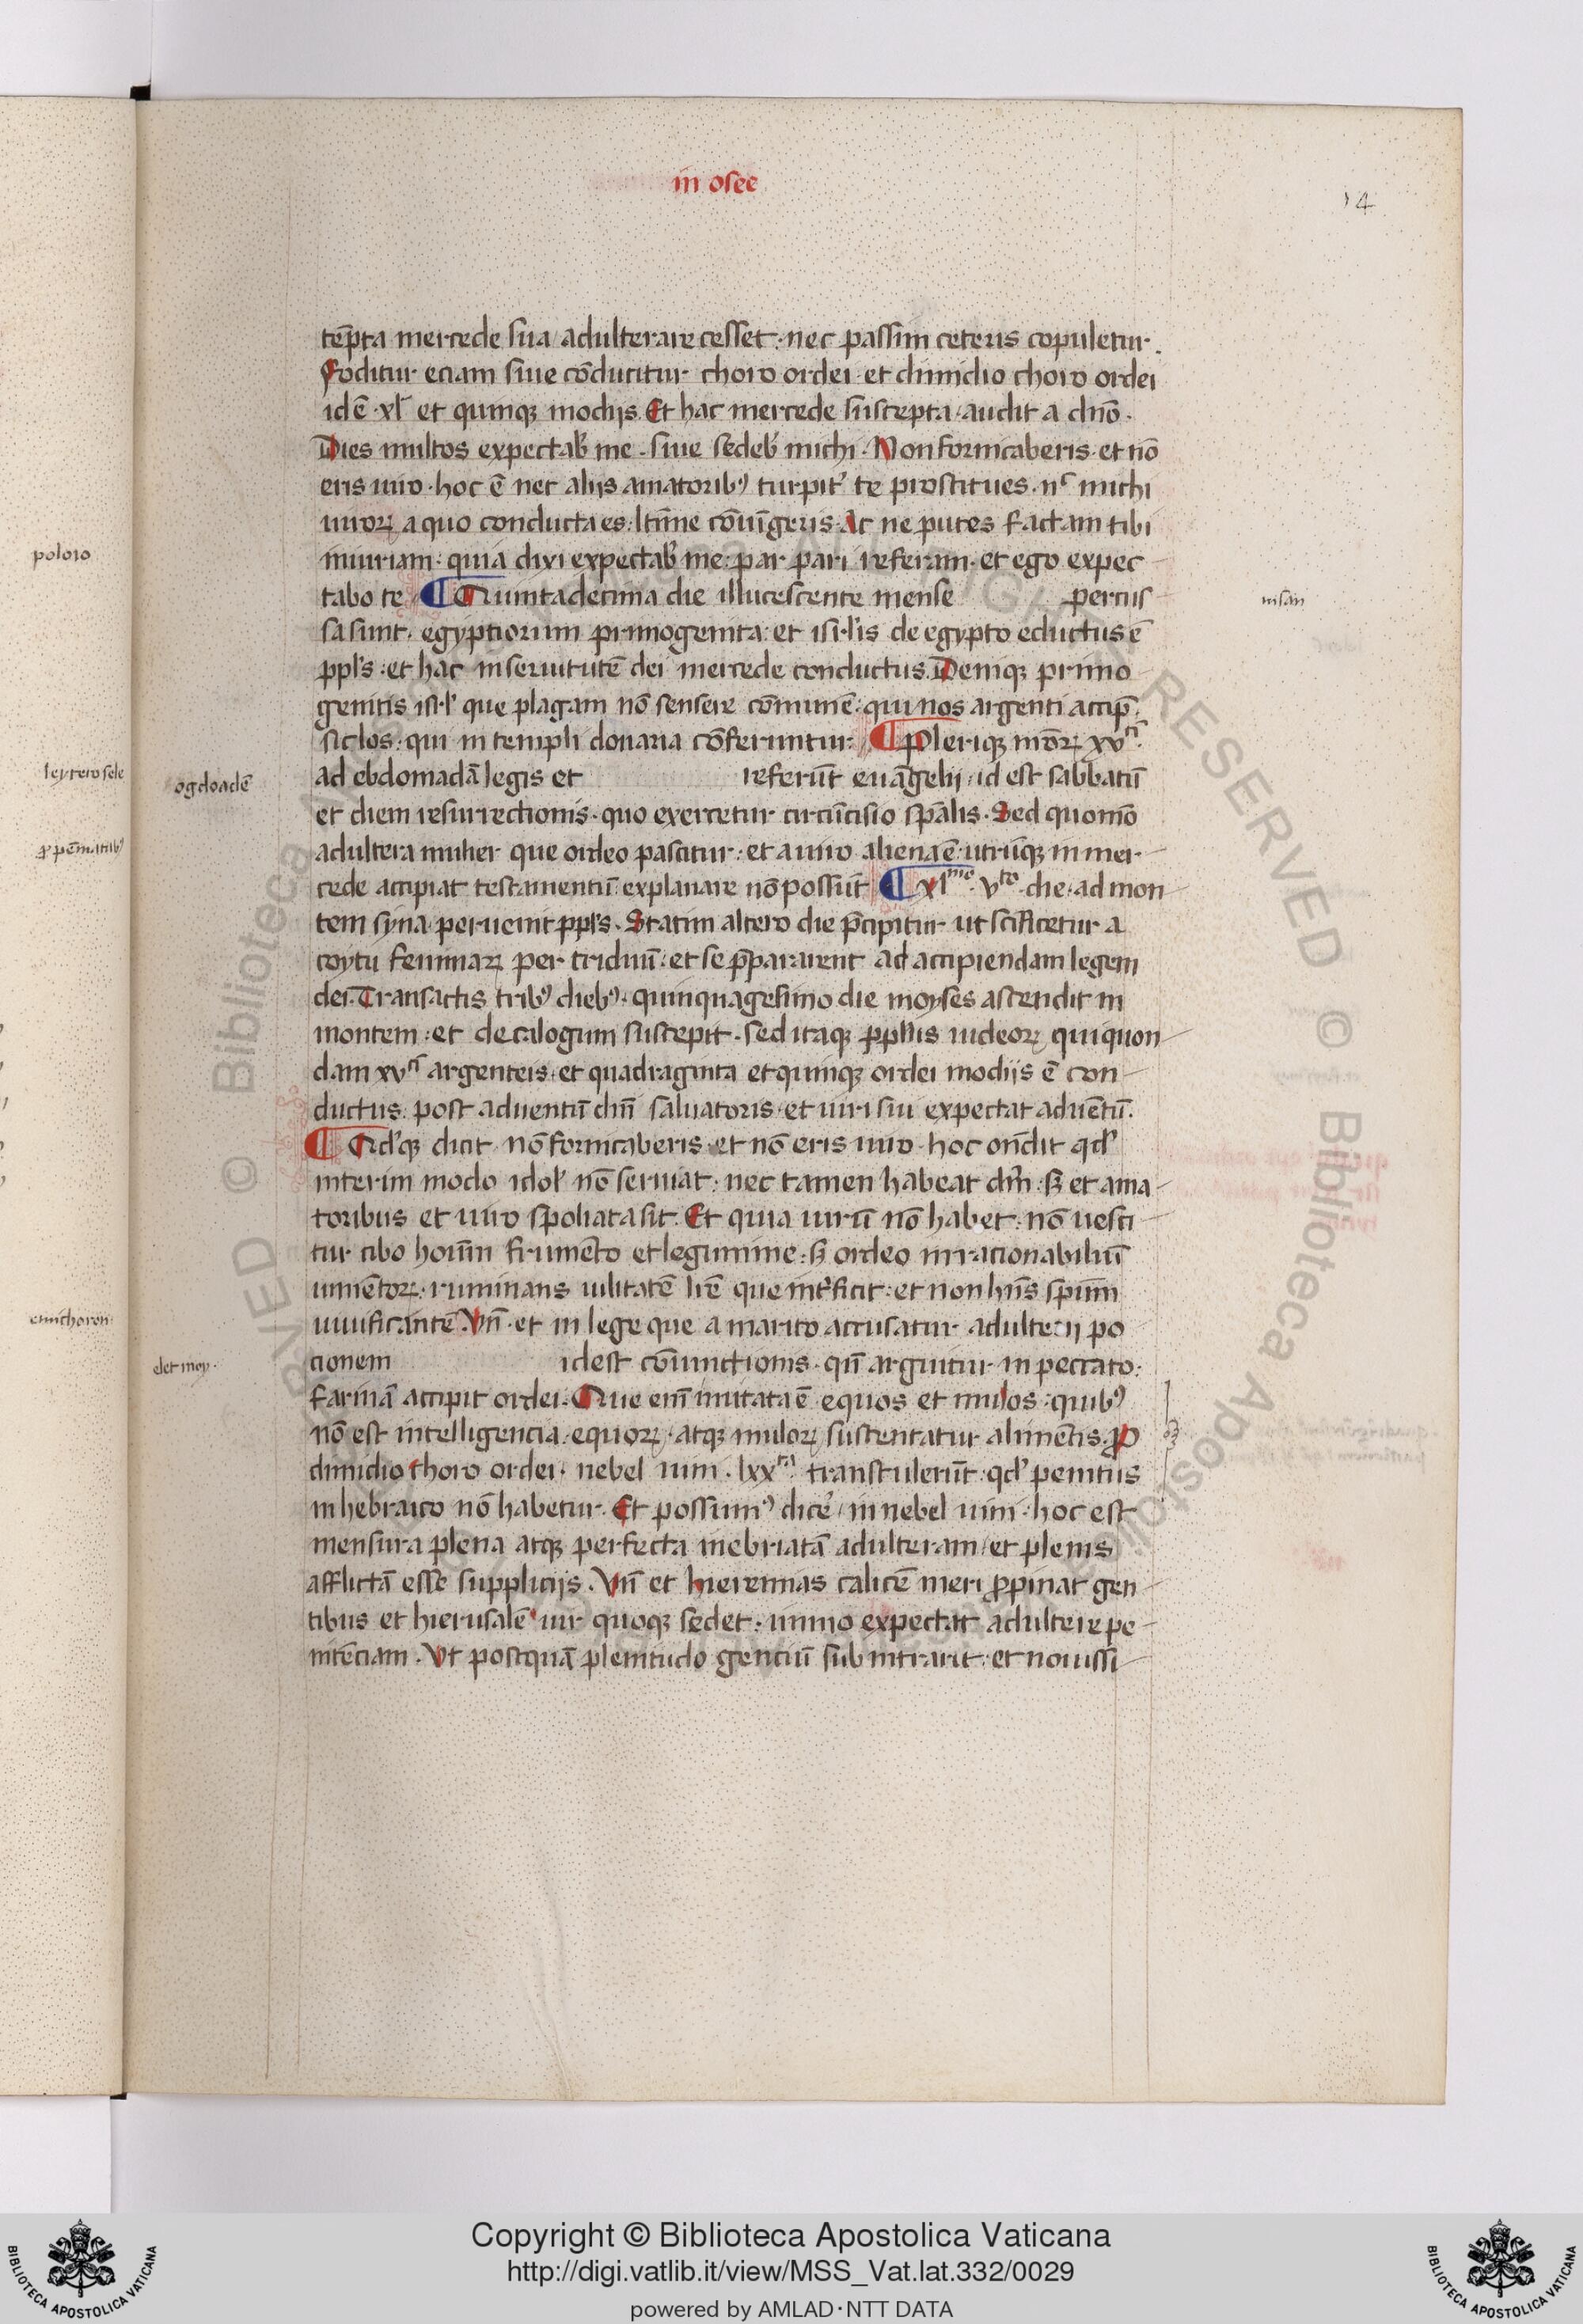 in osee
14
tēpta mercede sua adulterare cesset · nec passim ceteris copuletur.
Foditur eciam siue cōducitur choro ordei et dimidio choro ordei
id ē · xl et quinqꝫ modijs. Et hac mercede suscepta audit a dn̄o.
Dies multos expectab̄ me · siue sedeb̄ michi · Non fornicaberis · et nō
eris uiro · hoc ē nec alijs amatoribꝰ turpit̄ te prostitues · michi
uiroꝝ a quo conducta es Ac ne putes factam tibi
iniuriam · quia dixi expectab̄ me · par pari referam · et ego expec
tabo te ¶ Quintadecima die illucescente mense percus
nisan
sa sunt egyptiorum primogenita · et isrl̄is de egypto eductus ē
ppl̄s · et hac in seruitutē dei mercede conductus. Deniqꝫ primo
genitis isrl̄ que plagam nō sensere cōmunē · quinos argenti accip̄
siclos · qui in templi donaria cōferuntur ¶ Pleriqꝫ xv
ad ebdomadā legis et referūt euāgelij · id est sabbatū
ogdoadē
et diem resurrectionis · quo exercetur circūcisio sp̄alis · Sed quomō
adultera mulier que ordeo pascitur · et a uiro aliena ē · utrūqꝫ in mer
cede accipiat testamentū explanare nō possūt ¶ xl^mo · v^to · die · ad mon
tem syna peruenit ppl̄s. Statim altero die p̄cipitur ut sc̄ificetur a
coytu feminaꝝ per triduū · et se p̄pararent ad accipiendam legem
dei. Transactis tribꝰ diebꝰ · quinquagesimo die moyses ascendit in
montem · et decalogum suscepit · sed itaqꝫ iudeoꝝ qui quon
dam xv argenteis · et quadraginta et quinqꝫ ordei modijs ē con
ductus · post aduentū dn̄i saluatoris · et uiri sui expectat aduētū.
¶ Qd̓qꝫ dicit nō fornicaberis · et nō eris uiro · hoc on̄dit qd̓
interim modo idol̓ nō seruiat · nec tamen habeat dm̄ · sꝫ et ama
toribus et uiro spoliata sit. Et quia uirū nō habet · nō uesci
tur cibo hoīm frumēto et legumine · sꝫ ordeo irracionabiliū
iumētoꝝ · ruminans uilitatē lr̄e que int̓ficit · et non hn̄s sp̄um
uiuificantē. Vn̄ · et in lege que a marito accusatur adulterij po
cionem idest cōiunctionis · qn̄ arguitur in peccato ·
elet moy ·
farinā accipit ordei. Que enī imitata ē equos et mulos · quibꝰ
nō est intelligencia · equoꝝ · atqꝫ muloꝝ sustentatur alimētis. Pro
dimidio choro ordei · nebel uini · lxx transtulerūt · qd̓ penitus
in hebraico nō habetur. Et possumꝰ dicē in nebel uini · hoc est
mensura plena atqꝫ perfecta inebriatā adulteram et plenis
afflictā esse supplicijs. Vn̄ et hieremias calicē meri p̱pinat gen
tibus et hierusalē · uir quoqꝫ sedet · immo expectat adultere pe
nitēciam. Vt postquā plenitudo genciū subintrarit · et nouissi
poloro
etnichoron
Copyright © Biblioteca Apostolica Vaticana
http://digi.vatlib.it/view/MSS_Vat.lat.332/0029
powered by AMLAD·NTT DATA
BIBLIOTECA APOSTOLICA VATICANA
BIBLIOTECA APOSTOLICA VATICANA